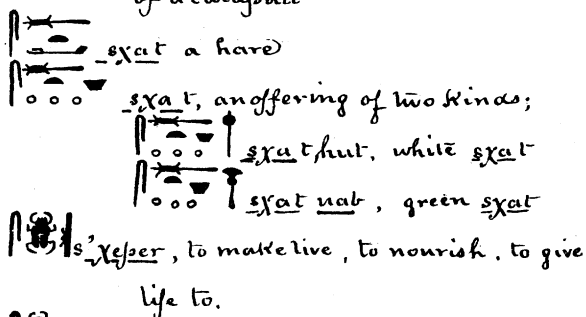 sχat a hare
sχat, an offering of two kinds;
sχat hut, white sχat
sχat uab, green sχat
s'χeper, to make live, to nourish, to give
life to.